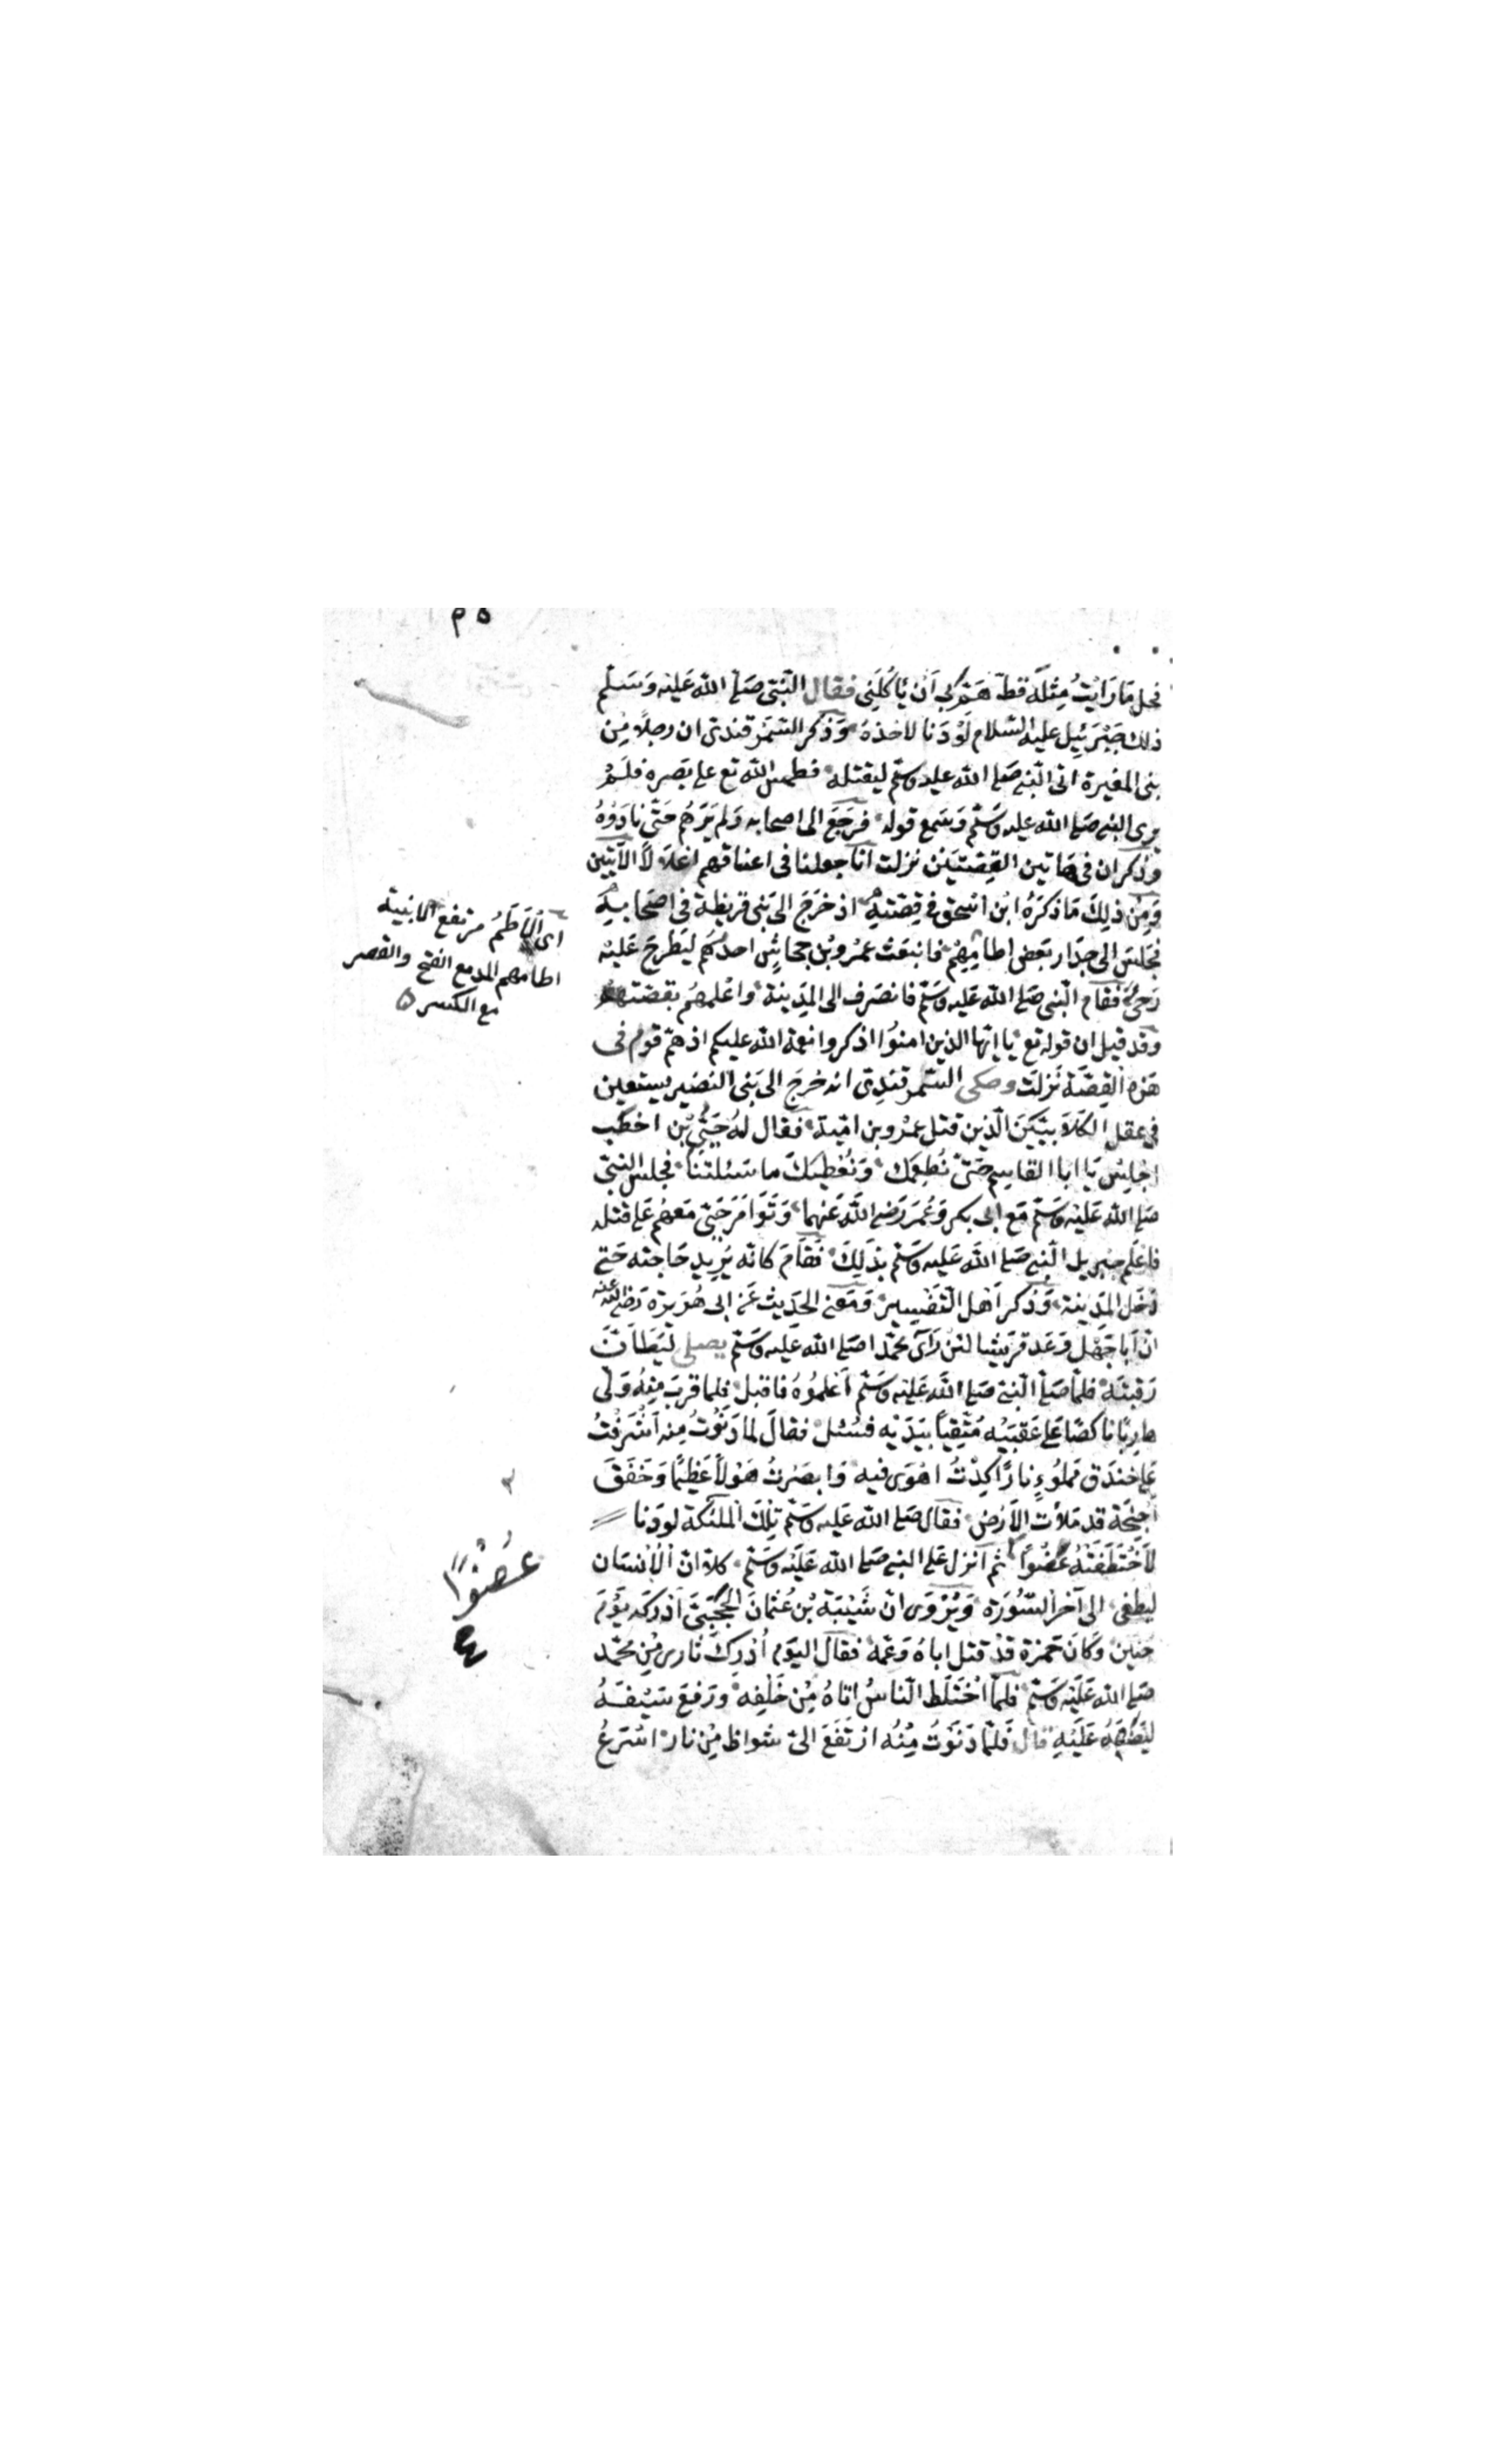 فحل مَا رَاَيْتُ مِثْلَهُ قطّ هَمَّ بى اَنْ يَاكُلَنِى فقال النَّبِىّ صَلى الله عَليْه وَسَلّم
ذلك جَبْرَئِيل عليه السّلام لَوْ دَنا لاخذهُ وَذكر السَّمَرْقندى ان رجلًا مِن
بنى المغيرة اتى النَّبى صَلى الله عليه وسَلّم ليقتله فطمس الله تع على بَصَره فلَمْ
يرى النبى صَلى الله عليه وَسَلّم وَسَمع قوله فرَجَعَ الى اصحابه وَلم يَرَهُم حَتّى نادَوْهُ
وذكر ان فى هَاتين القِصَّتيْن نزلت انا جعلنا فى اعناقهم اغلَالًا الآيتين
وَمِن ذلِكَ مَا ذكَرَهُ ابْن اسحق فى قِصّتِهِ اذ خَرَجَ الى بَنى قريظة فى اصحابِهِ
فجَلسَ الى جِدَار بَعْض اطامِهِمْ فانبَعَث عمْرو بْن جحاش احدهُم ليَطرحَ عَليْه
رَحًى فَقام النّبى صَلى الله عَليه وسَلّم فانصَرف الى المدِينة وَاعْلمهُم بقصّتهم
وَقد قيل ان قوله تع يا ايّها الذين امنوُا اذكروا نعمة الله عليكم اذ همّ قوم فى
هَذه القِصّة نَزلت وحكى السَّمرقندِى انه خرجَ الى بَنى النضير يستعين
فى عقل الكلَابِيَّيْنَ الّذين قتل عمْرو بن اميّة فقال لهُ حُيَىُّ بْن اخطَب
اجلِسْ يَا ابا القاسِم حَتىّ نُطعِمَك وَنُعْطِيَكَ ما سَئلتنَا فجلس النبىّ
صَلى الله عَليْه وسَلّم مَع ابى بكر وَعُمَرَ رَضى الله عَنهما وَتَوَامَرَ حُيَىّ مَعهُم عَلى قتله
فاعْلَم جبريل النّبى صَلى الله عَليه وسَلّم بذَلِكَ فَقَامَ كانه يُرِيد حَاجته حَتى
دَخل المَدِينة وَذكر اَهْل التَّفسِير وَمَعنى الحَدِيث عَن ابى هُرَيرَة رَضى الله عنه
انّ اَبا جَهْل وَعَد قرَيشا لئن رَآى محمّدا صَلى الله عَليه وسَلّم يصلى ليَطَانَّ
رَقبتَه فلمّا صَلى النّبى صَلى الله عَليه وسَلّم اَعْلموُهُ فاقبل فلما قربَ مِنهُ وَلّى
هاربًا ناكصًا عَلى عَقِبَيْه مُتَّقِيًا بيَدَيْه فسُئل فقالَ لما دَنَوْتُ مِنه اَشْرَفْتُ
عَلى خنْدَق مَملُوءٍ نارًا كِدْتُ اهْوَى فيه وَابصَرْتُ هَوْلًا عَظِيمًا وَخَفْقَ
اَجنِحَة قد مَلأَت الاَرْض فقال صَلى الله عَليه وسَلّم تِلكَ المَلئكة لو دَنا
لاَخْتَطفَتْهُ عُضْوًا ثم اَنزل عَلى النبى صَلى الله عَليْه وسَلّم كلا انّ الاِنسَان
ليطغى الى آخر السّورَة وَيُرْوَى انّ شَيْبَة بْن عُثمانَ الحَجَبِىّ اَدْرَكه يَوْمَ
حُنَيْن وَكانَ حَمْزة قدْ قتل اباهُ وَعَمه فقال اليَوم اُدْرِك ثارى مِنْ محَمّد
صَلى الله عَليْه وسَلّم فلمّا اخْتَلط النّاسُ اتاهُ مِنْ خَلفِه وَرَفعَ سَيْفَهُ
ليَصُبَّهُ عَليْهِ قال فَلمّا دَنَوْتُ مِنْهُ ارْتَفَعَ الىّ شواظ مِنْ نار اَسْرَعُ
اى الاَطَمُ مرتفع الابنية
اطامهم المد مع الفتح والقصر
مع الكسر ٥
عُضْوًا